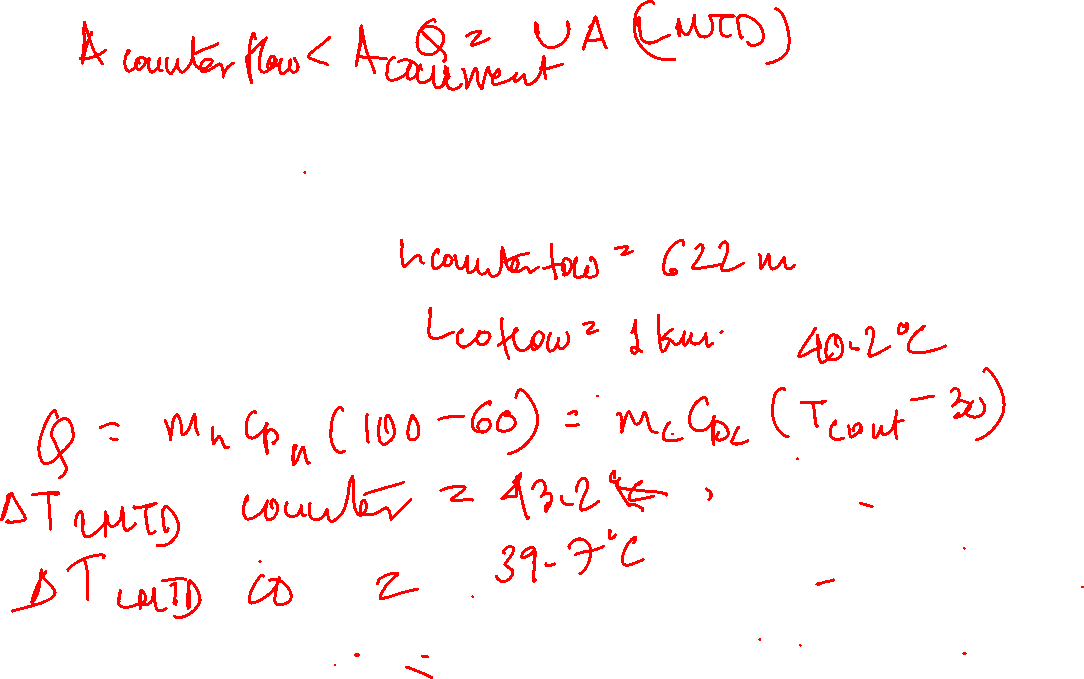 A counter flow < A cocurrent Q = UA (LMTD)
L counterflow = 622 m
L coflow = 1 km.
40.2°C
Q = m_h Cp_h (100-60) = m_c Cp_c (T_c out - 30)
ΔT LMTD counter = 43.2°C,
ΔT LMTD co = 39.7°C